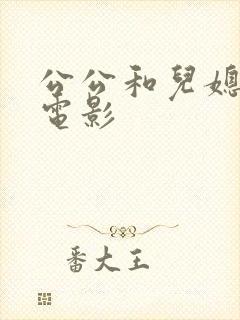 公公和兒媳
電影
番大王